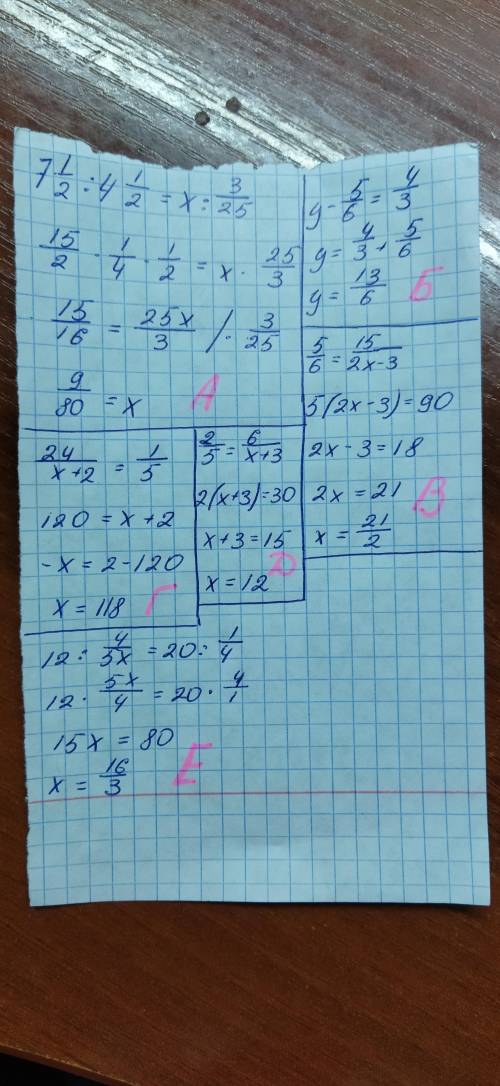 7 1/2 : 4 1/2 = x : 3/25
15/2 · 1/4 · 1/2 = x · 25/3
15/16 = 25x/3 / · 3/25
9/80 = x
А
y - 5/6 = 4/3
y = 4/3 + 5/6
y = 13/6
Б
5/6 = 15/2x-3
5(2x-3)=90
2x-3=18
2x=21
x = 21/2
В
24/x+2 = 1/5
120 = x+2
-x = 2-120
x = 118
Г
2/5 = 6/x+3
2(x+3)=30
x+3=15
x=12
Д
12 : 4/5x = 20 : 1/4
12 · 5x/4 = 20 · 4/1
15x = 80
x = 16/3
Е